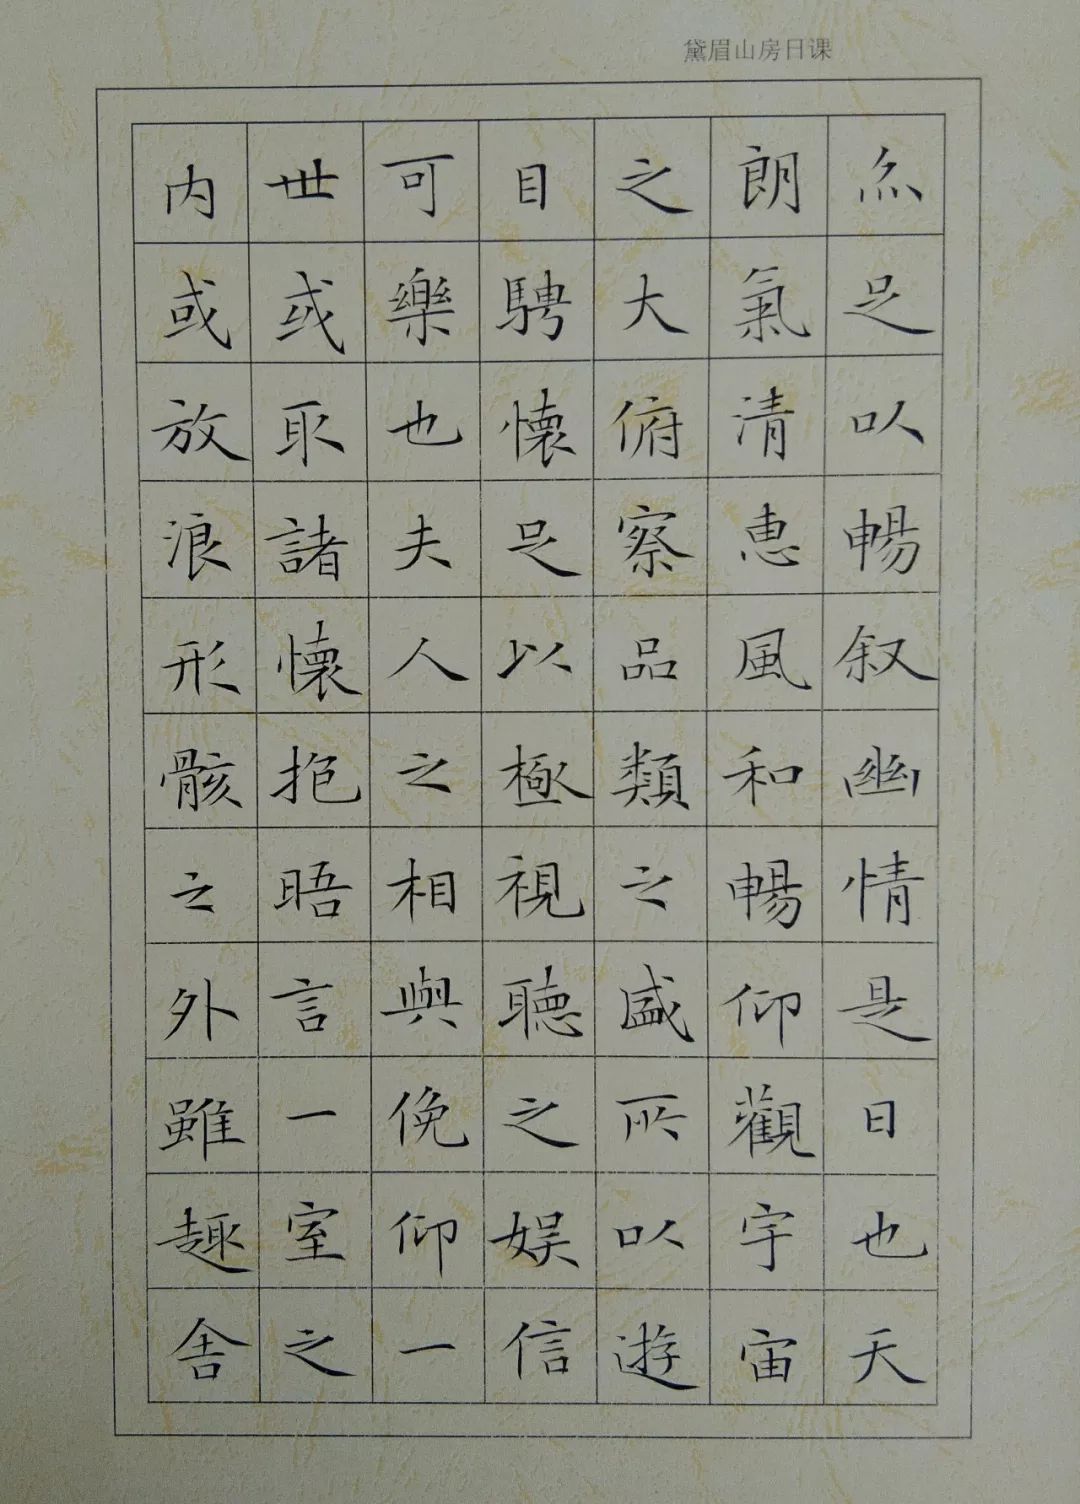 黛眉山房日课
亦足以暢叙幽情是日也天
朗氣清惠風和暢仰觀宇宙
之大俯察品類之盛所以遊
目騁懷足以極視聽之娱信
可樂也夫人之相與俛仰一
世或取諸懷抱晤言一室之
内或放浪形骸之外雖趣舍